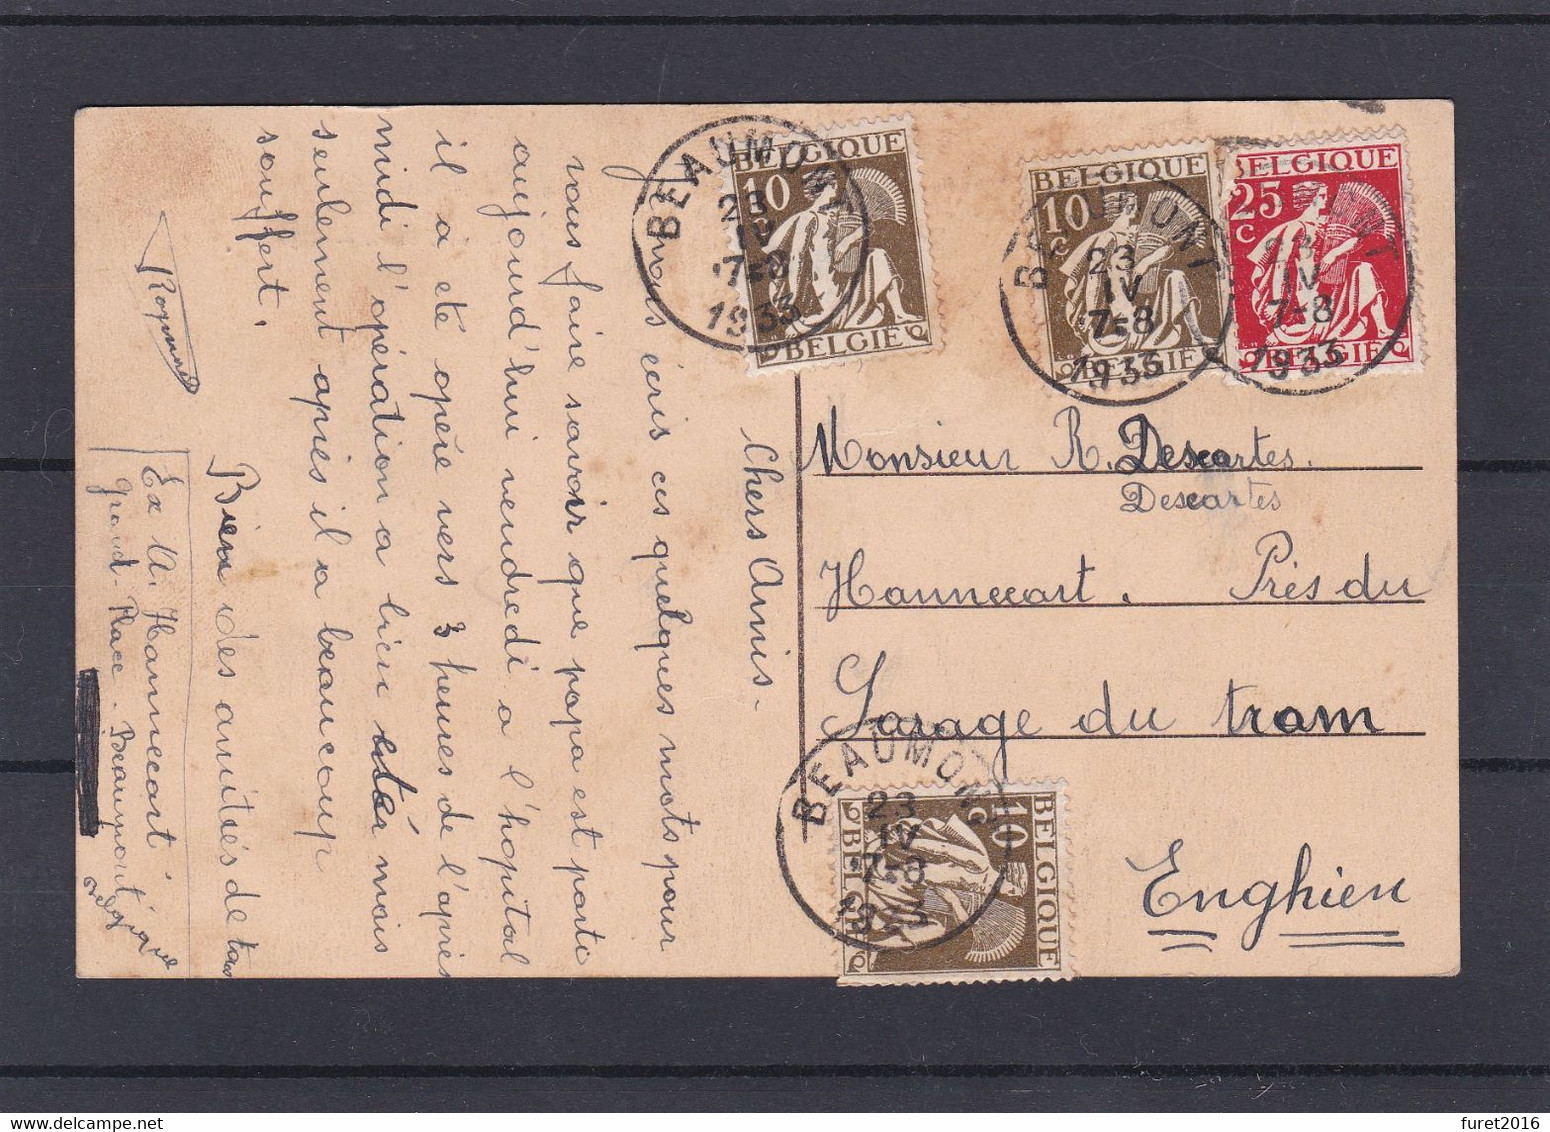 Chers Amis.
Je vous écris ces quelques mots pour
vous faire savoir que papa est parti
aujourd'hui vendredi a l'hopital
il a été opéré vers 3 heures de l'après
midi l'opération a bien été mais
seulement après il a beaucoup
souffert.
Bien des amitiés de tous
Raymond
Ex A. Hannecart
Grand. Place. Beaumont
Belgique
BEAUMONT
23
IV
7-8
1933
BELGIQUE
10
c
BELGIE
BEAUMONT
23
IV
7-8
1933
BELGIQUE
10
c
BELGIE
BEAUMONT
23
IV
7-8
1933
BELGIQUE
25
c
BELGIE
Monsieur R. Descartes.
Descartes
Hannecart. Près du
Garage du tram
Enghien
BEAUMONT
23
IV
7-8
1933
BELGIQUE
10
c
BELGIE
furet2016
delcampe.net